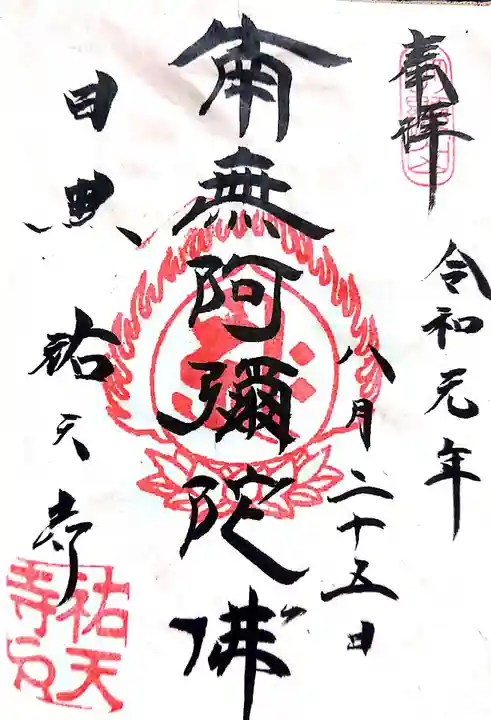 奉拝
令和元年
八月二十五日
南無阿彌陀佛
目黒 祐天寺
祐天寺